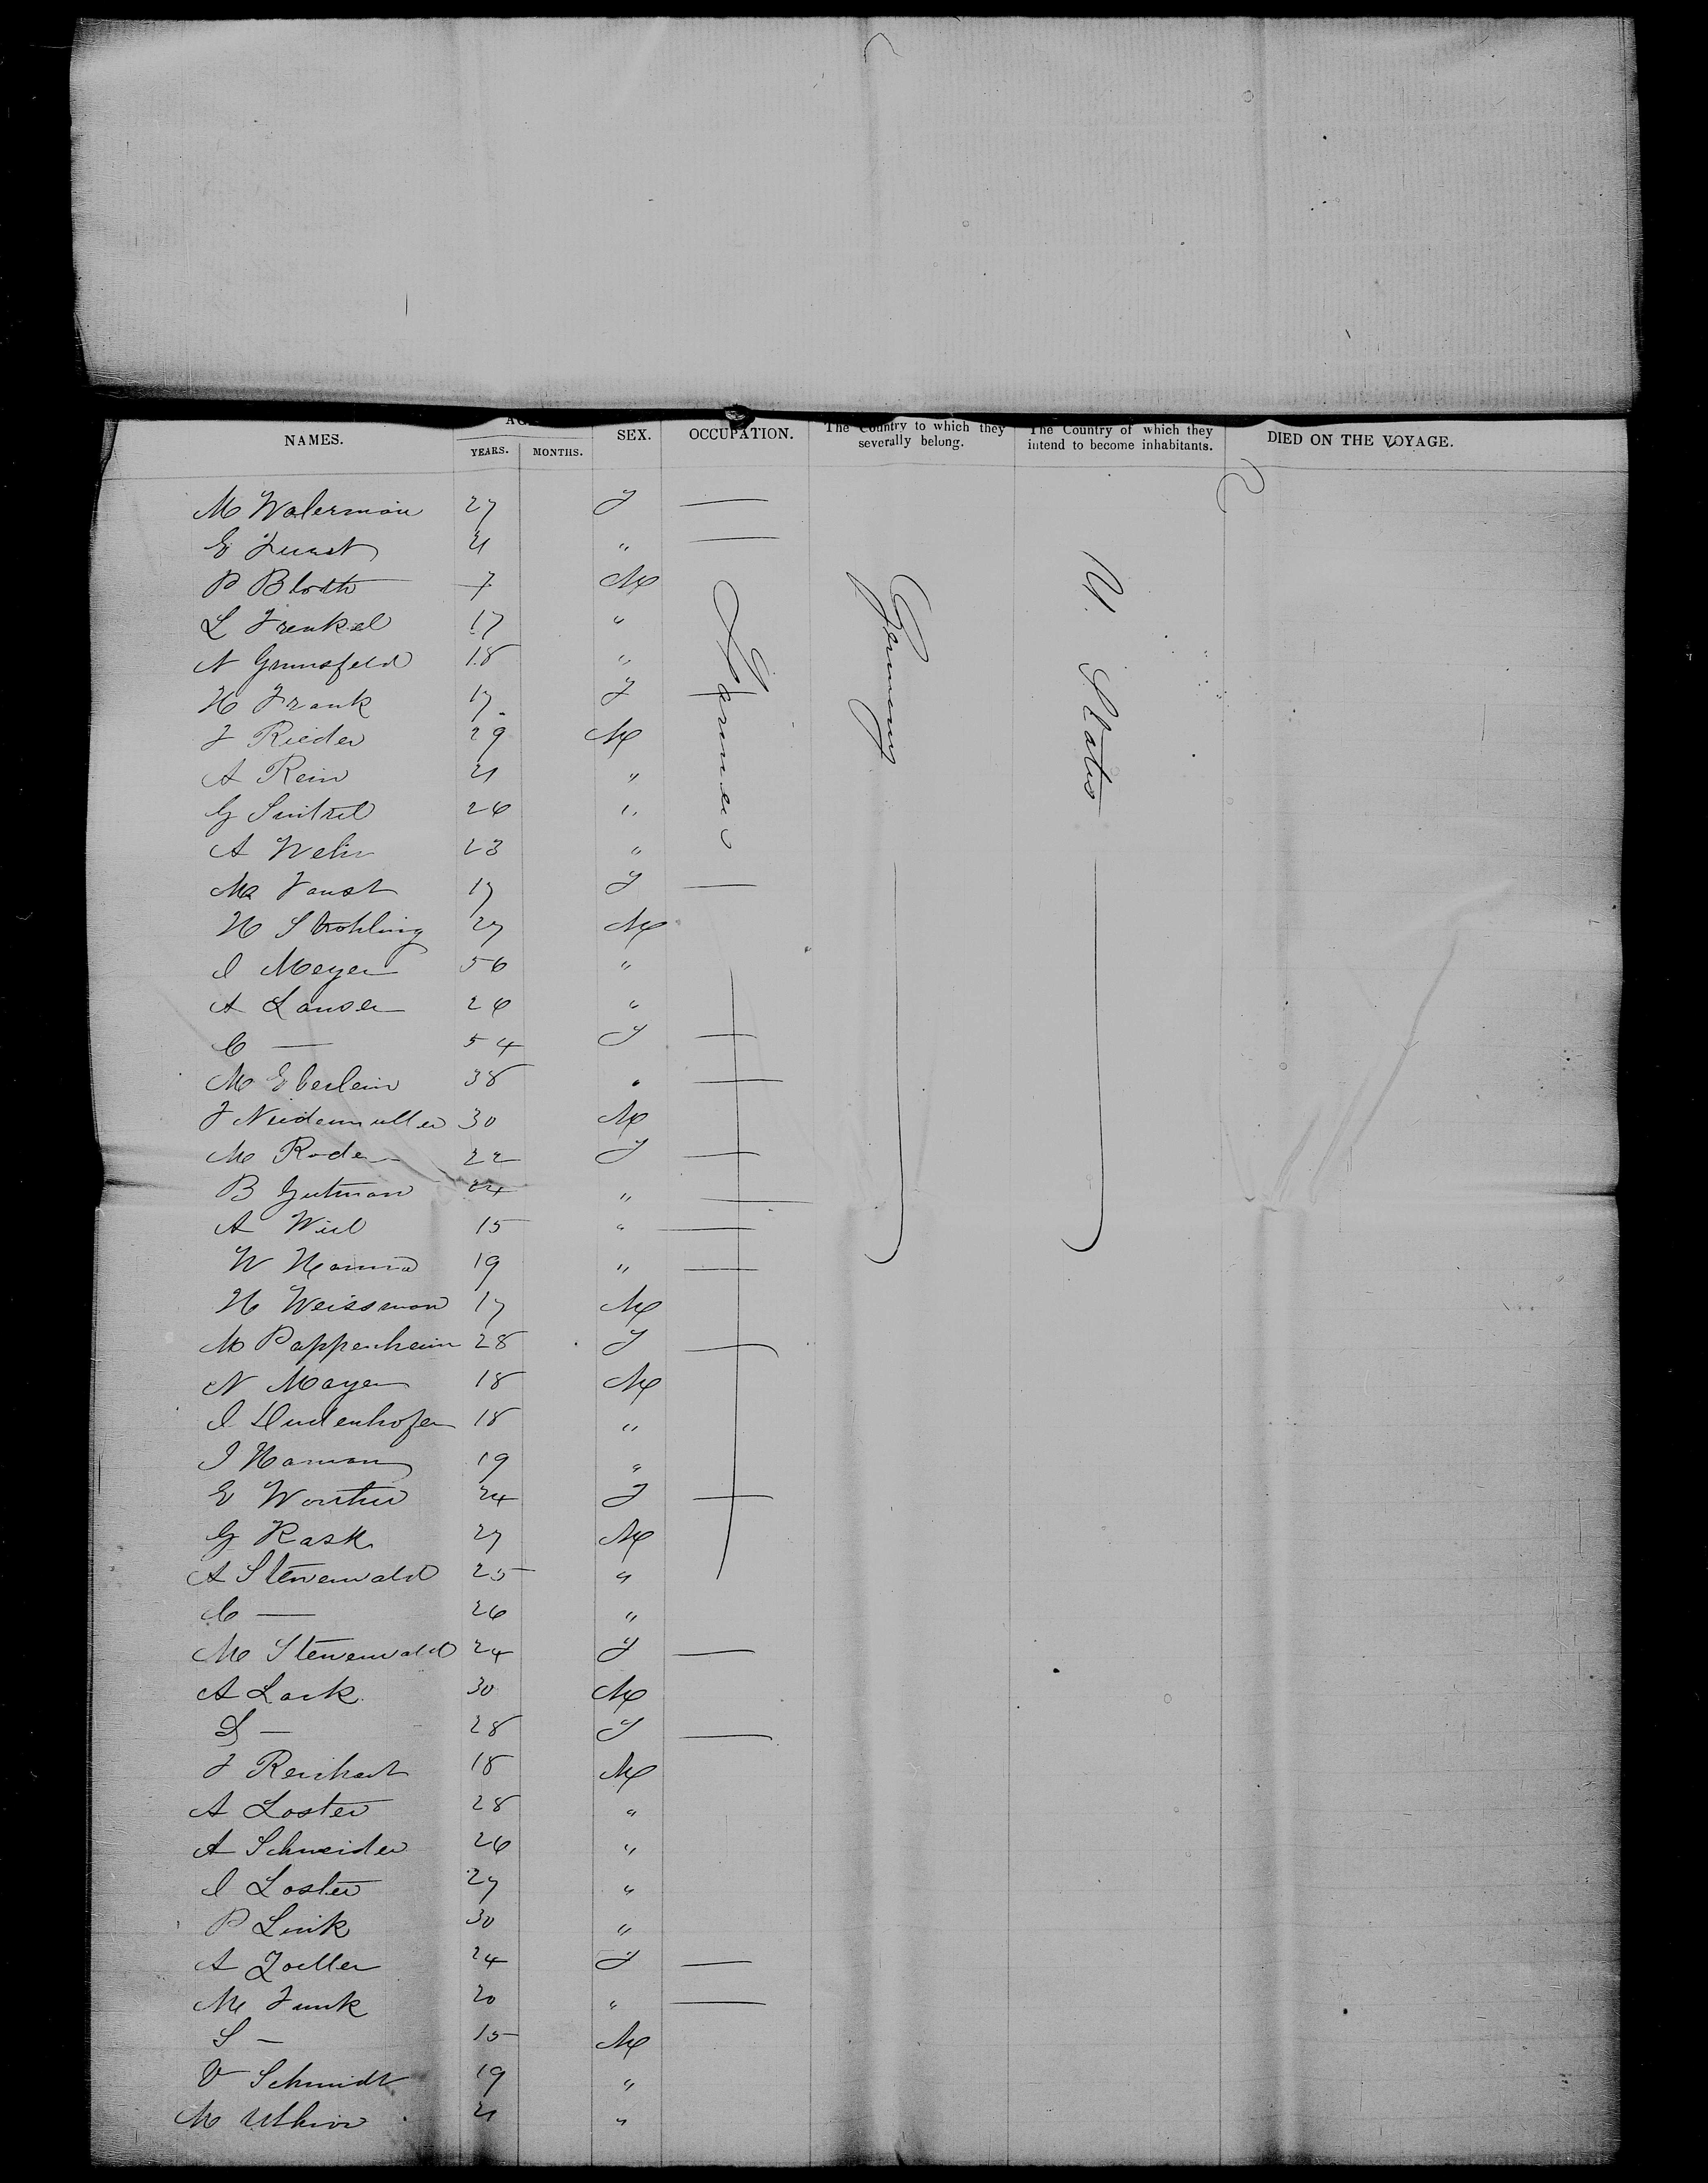 NAMES. YEARS. MONTHS. SEX. OCCUPATION. The Country to which they severally belong. The Country of which they intend to become inhabitants. DIED ON THE VOYAGE.
Farmer Germany U. States
M Walerman 27 F —
E 21 " —
P 7 M
L Frenkel 17 "
N Grunsfeld 18 "
H Frank 17 F
F Rieder 29 M
A Rein 21 "
G 26 "
A Wehr 23 "
M Faust 17 F —
H Strohling 27 M
I Meyer 56 "
A Lauser 26 "
C — 54 F —
M Eberlein 38 " —
F Niedermuller 30 M
M Roder 22 F —
B Gutman 24 " —
A Weil 15 " —
W Hanna 19 " —
H Weissman 17 M
M Pappenheim 28 F —
N Mayer 18 M
I Dudenhofer 18 "
I Haman 19 "
E 24 F —
G Rask 27 M
A Sterenwald 25 "
C — 26 "
M Sterenwald 24 F —
A Lark 30 M
S — 28 F —
F Reichart 18 M
A Loster 28 "
A Schneider 26 "
I Loster 27 "
P Link 30 "
A Zoeller 24 F —
M Funk 20 " —
S — 15 M
V Schmidt 19 "
M 21 "